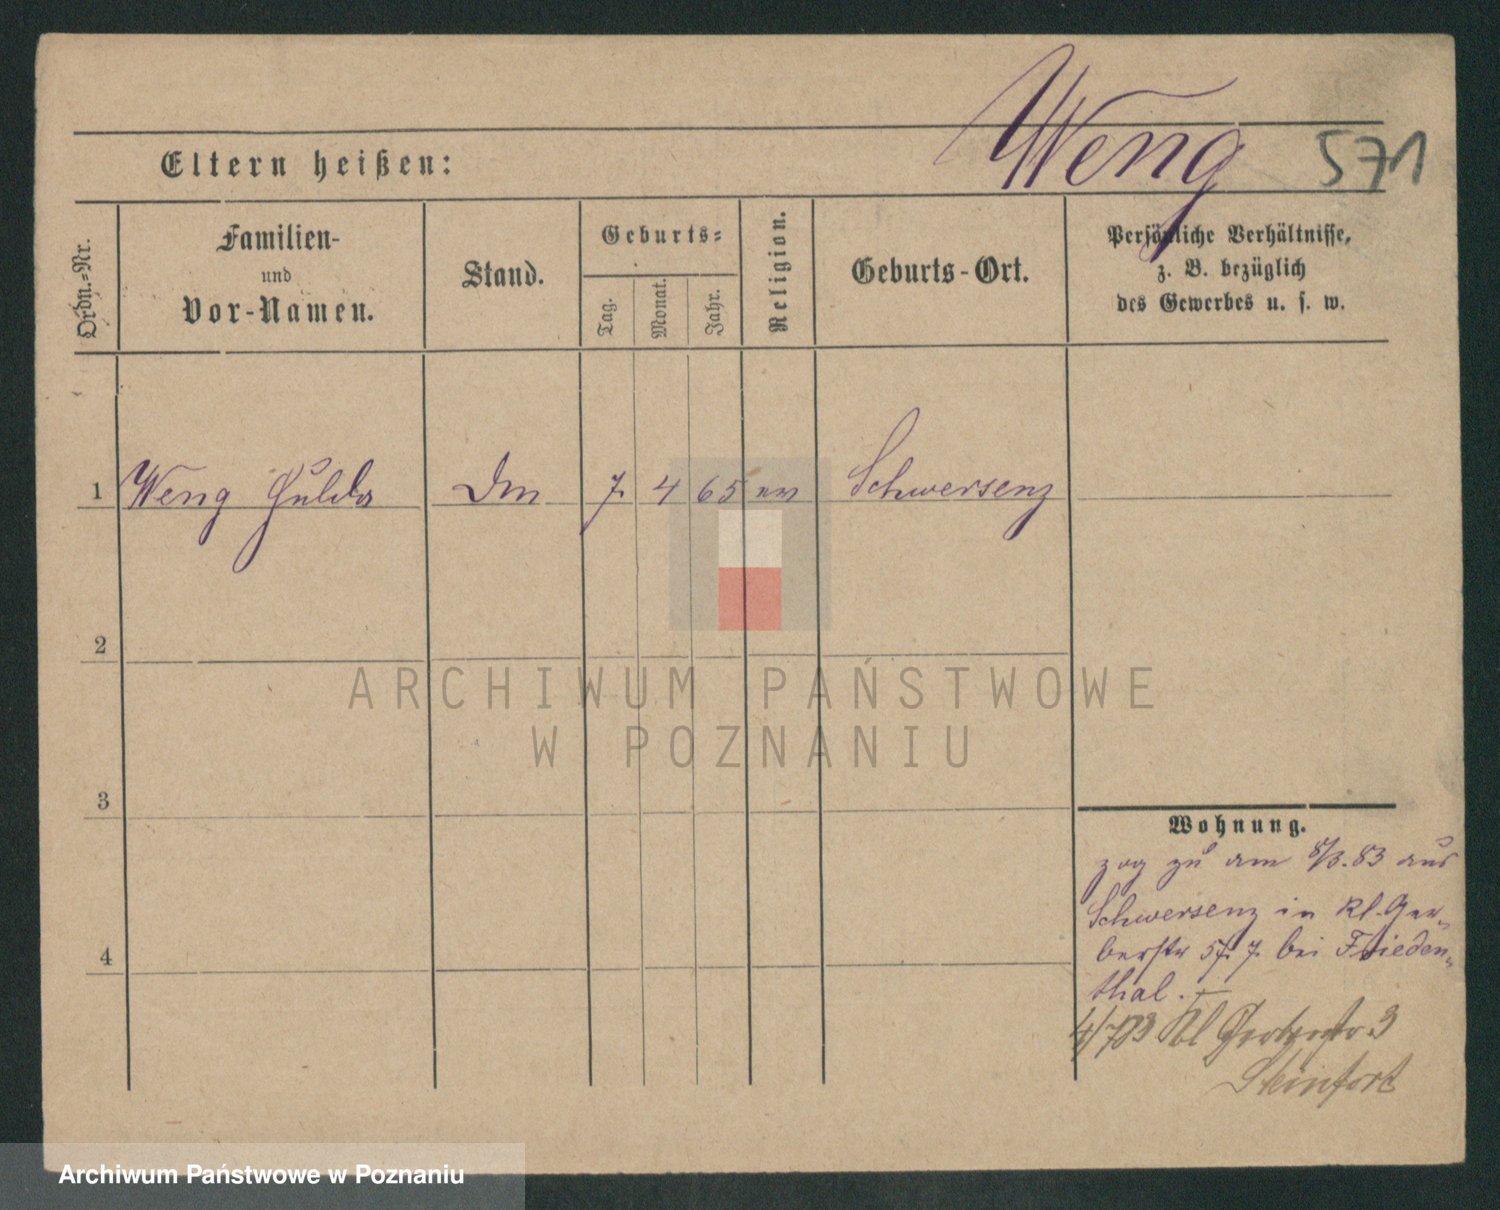 Weng
571
Eltern heißen:
Ordn.-Nr.
Familien-
und
Vor-Namen.
Stand.
Geburts-
Tag.
Monat.
Jahr.
Religion.
Geburts-Ort.
Persönliche Verhältnisse,
z. B. bezüglich
des Gewerbes u. s. w.
1 Weng Hulda 7. 4 65 Schwersenz
2
ARCHIWUM PAŃSTWOWE
W POZNANIU
3
4
Wohnung.
zog zu am 8/3. 83 aus
Schwersenz in Kl. Ger-
berstr 7. bei Frieden-
thal.
Kl Gerberstr. 3
Steinfort
Archiwum Państwowe w Poznaniu